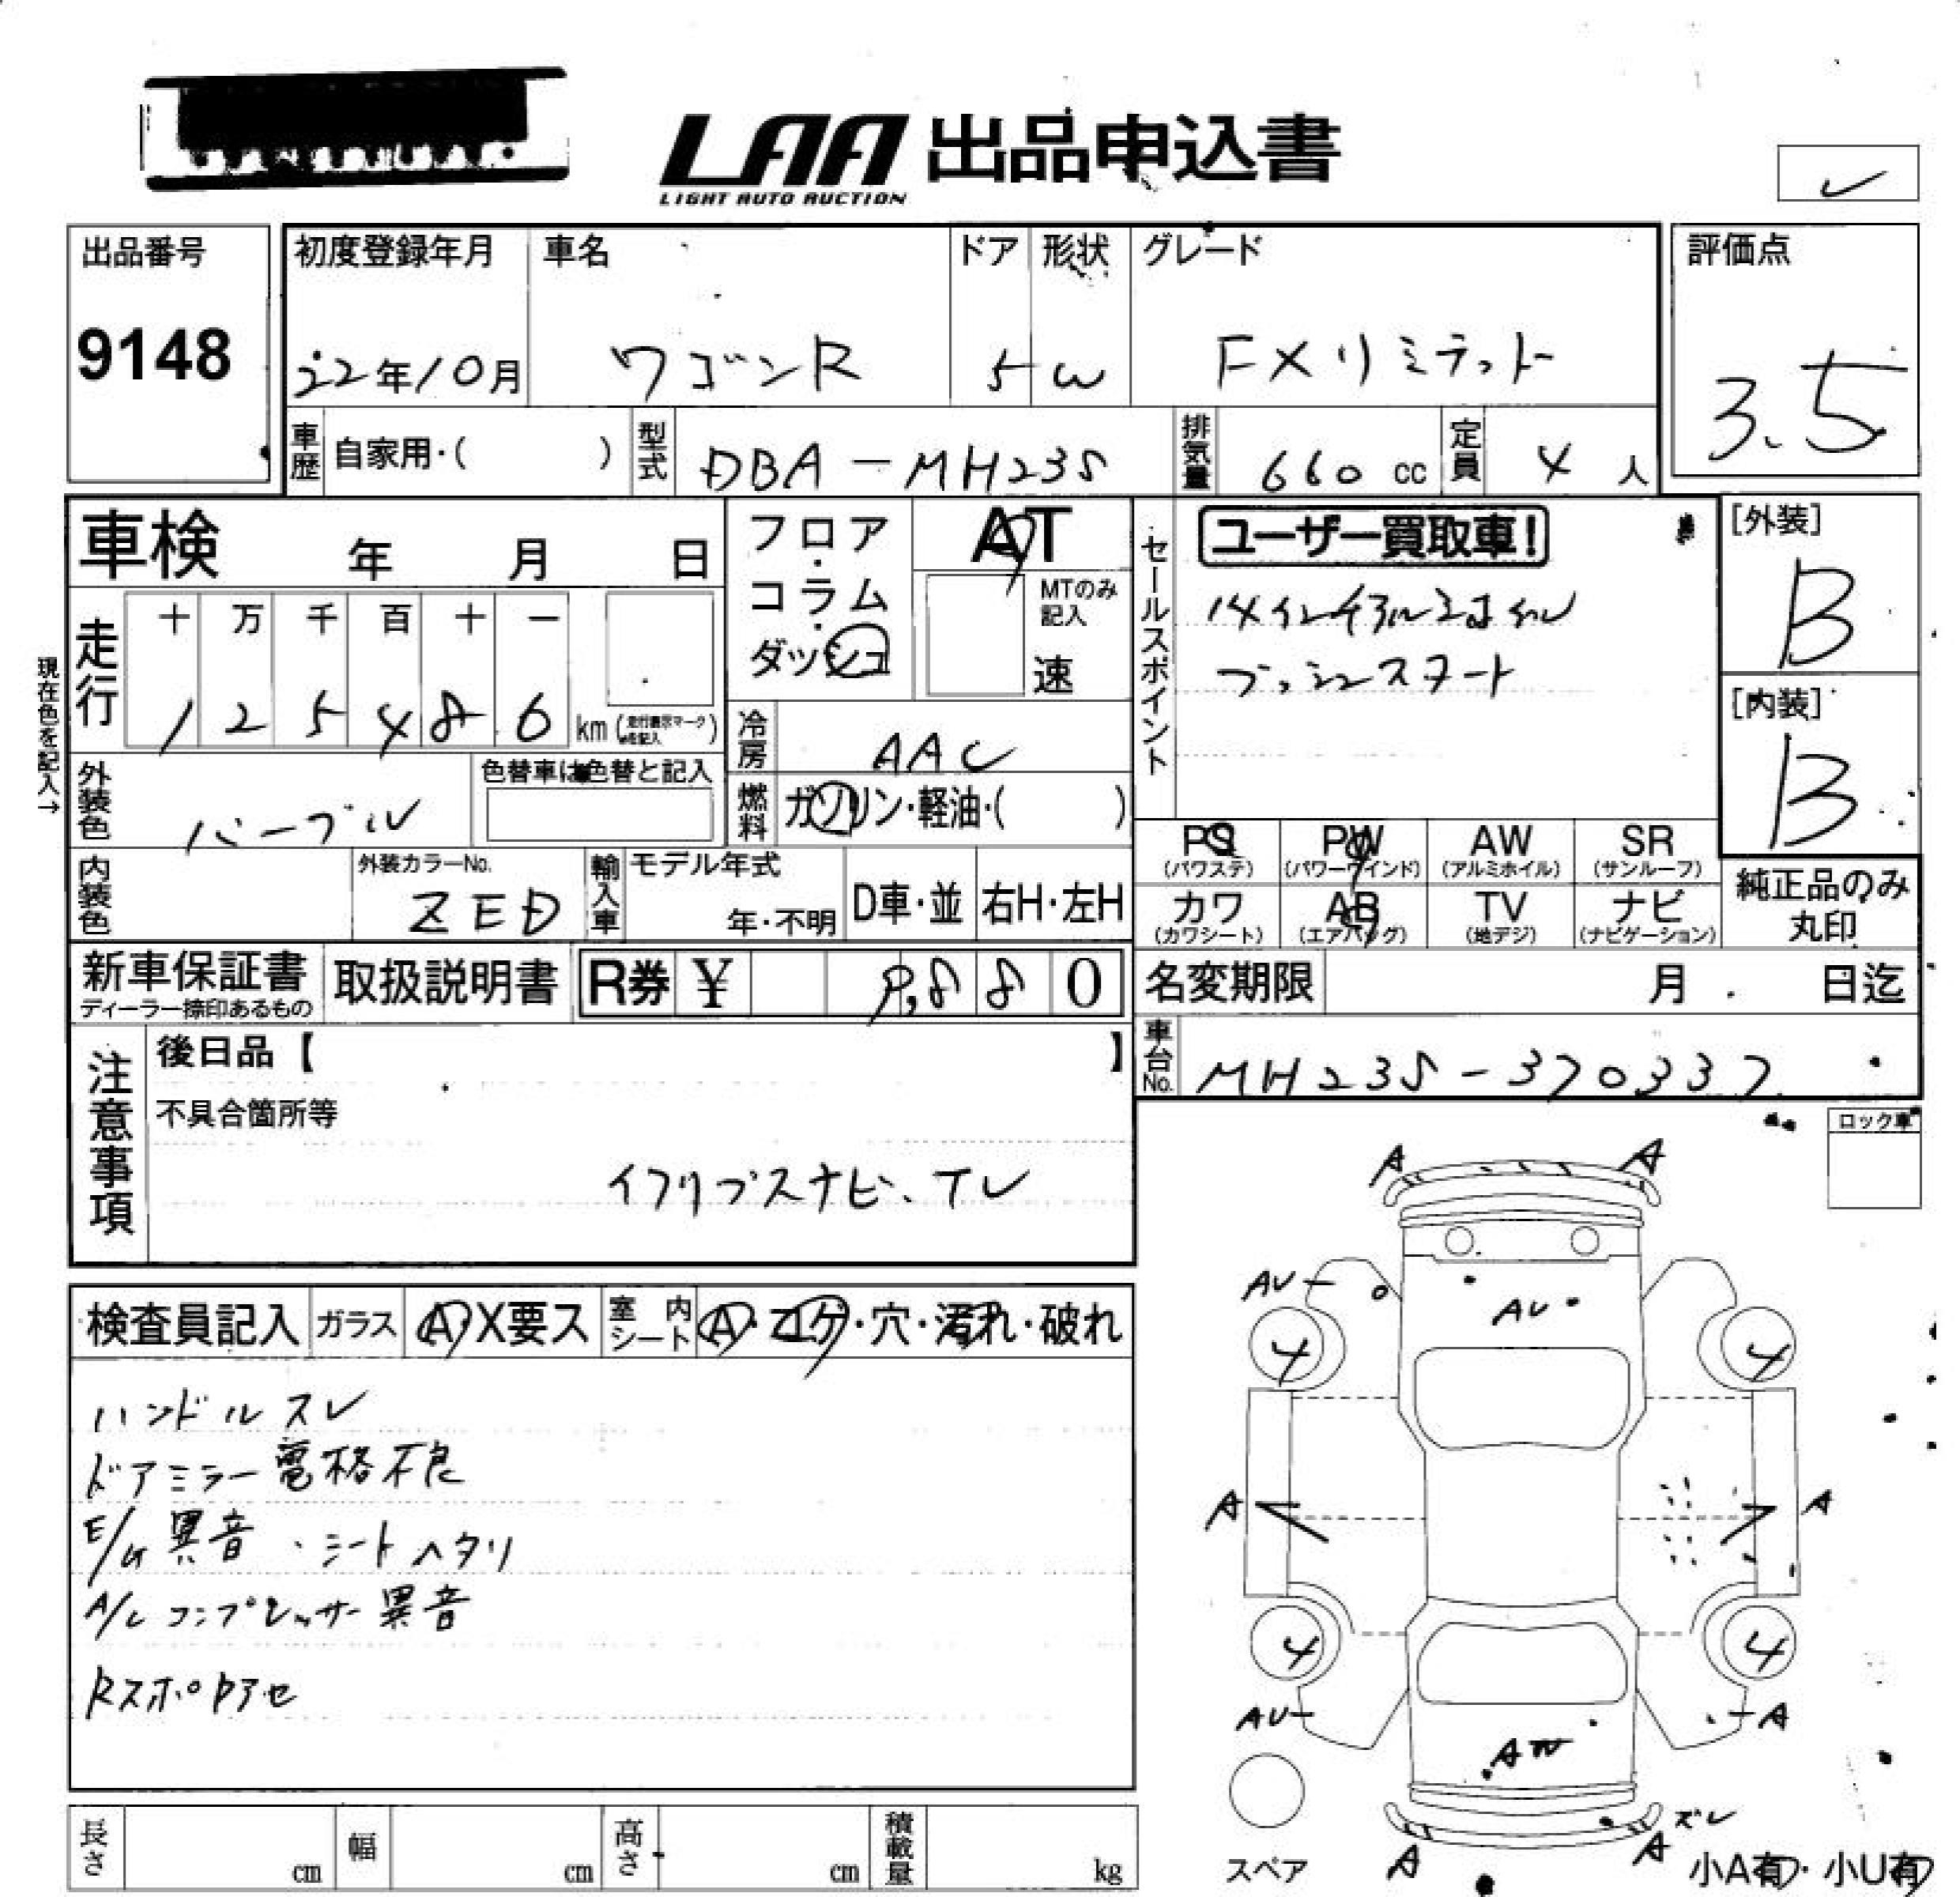 LAA 出品申込書
LIGHT AUTO AUCTION
出品番号
9148
初度登録年月
22年10月
車名
ワゴンR
ドア
5
形状
W
グレード
FXリミテッド
評価点
3.5
車歴 自家用・( )
型式 DBA-MH23S
排気量 660 cc
定員 4 人
車検 年 月 日
フロア・コラム・ダッシュ
AT
MTのみ記入
速
現在色を記入→
走行
十 万 千 百 十 一
1 2 5 4 8 6 km
冷房 AAC
燃料 ガソリン・軽油・( )
外装色 パープル
色替車は色替と記入
内装色
外装カラーNo.
ZED
輸入車
モデル年式
年・不明
D車・並
右H・左H
セールスポイント
ユーザー買取車!
プッシュスタート
[外装]
B
[内装]
B
PS (パワステ)
PW (パワーウインド)
AW (アルミホイル)
SR (サンルーフ)
カワ (カワシート)
AB (エアバッグ)
TV (地デジ)
ナビ (ナビゲーション)
純正品のみ
丸印
新車保証書
ディーラー捺印あるもの
取扱説明書
R券 ¥ 9,880
名変期限 月 日迄
車台No. MH23S-370337
注意事項
後日品【 】
不具合箇所等
イクリプスナビ、テレ
ロック車
検査員記入
ガラス A・X要ス
室内シート A・コゲ・穴・汚れ・破れ
ハンドルスレ
ドアミラー電格不良
E/G異音・シートヘタリ
A/Cコンプレッサー異音
A A
AU AU
4 4
A A
4 4
AU A
AW
ズレ
A A
スペア
小A有・小U有
長さ cm
幅 cm
高さ cm
積載量 kg